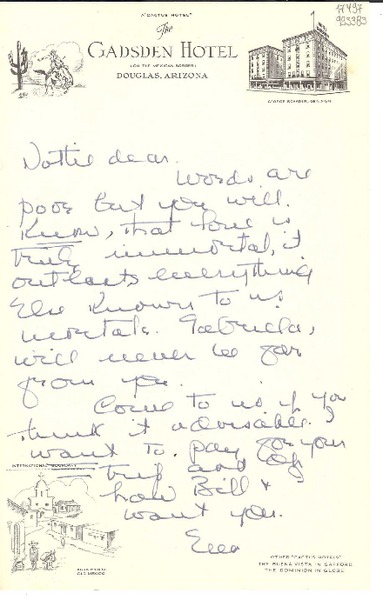 "CACTUS HOTEL"
The
GADSDEN HOTEL
(ON THE MEXICAN BORDER)
DOUGLAS, ARIZONA
Dottie dear.
Words are
poor but you will
know, that love is
truly immortal, it
outlasts everything
else known to us
mortals. Gabriela,
will never be far
from you.
Come to us if you
think it advisable. I
want to pay for your
trip and
how Bill &
want you.
INTERNATIONAL
OLD MEXICO
OTHER "CACTUS HOTELS"
THE BUENA VISTA IN SAFFORD
THE DOMINION IN GLOBE